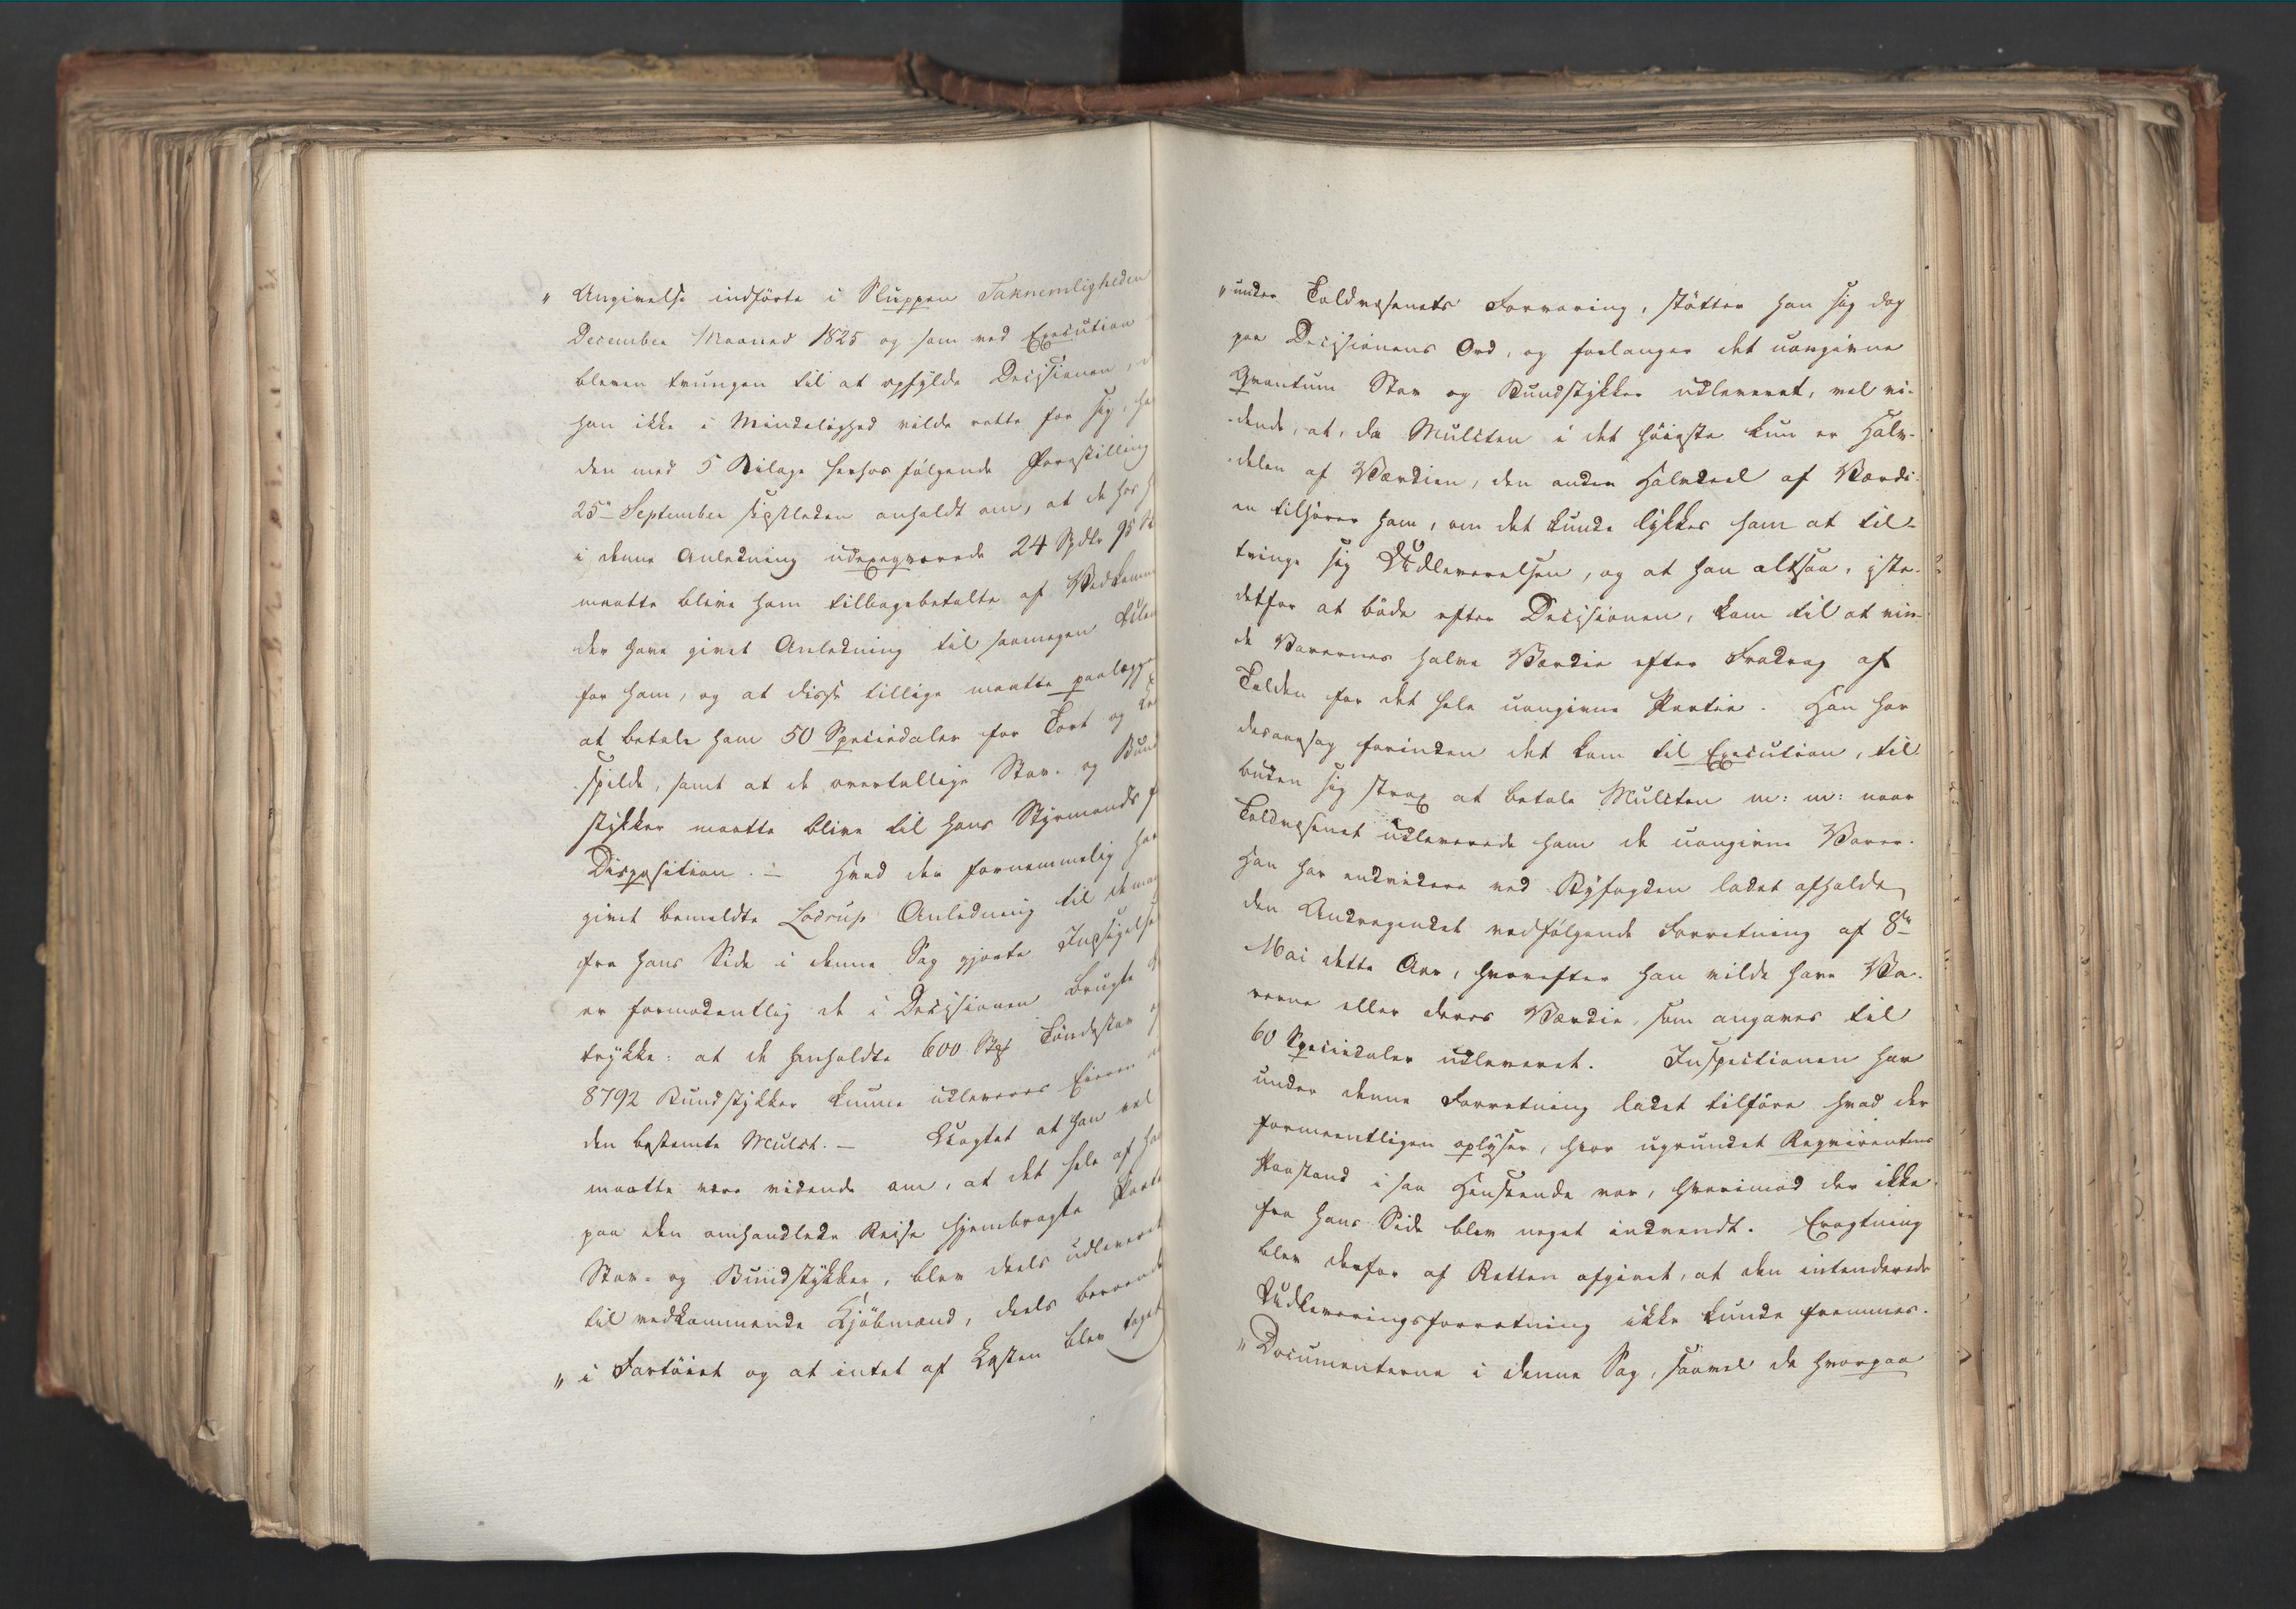 „ Angivelse indførte i Sluppen Taknemligheden
December Maaned 1825 og som ved Execution
bleven tvungen til at opfylde Decisionen, d
han ikke i Mindelighed vilde rette for sig, ha
den med 5 Bilage herhos følgende Forestilling
25de September sidstleden anholdt om, at de hos h
i denne Anledning udexeqverede 24 Spdlr 95 
maatte blive ham tilbagebetalte af Vedkomm
der have givet Anledning til saamegen Ulem
for ham, og at disse tillige maatte paalægge
at betale ham 50 Speciedaler for Tort og 
spilde, samt at de overtallige Stav- og Bund
stykker maatte blive til hans Styrmands f
Disposition. – Hvad der fornemmelig har
givet bemeldte Lodrup Anledning til de ma
fra hans Side i denne Sag gjorte Indsigelse
er formodentlig de i Decisionen brugte 
trykke: at de henholdte 600 Stk Tøndestav 
8792 Bundstykker kunne udleveres Eieren 
den bestemte Mulct. – Uagtet at han vel
maatte være vidende om, at det hele af ha
paa den omhandlede Reise hjembragte Parti
Stav- og Bundstykker, blev deels udleveret
til vedkommende Kjøbmand, deels beroende
„ i Fartøiet og at intet af Lasten blev taget
„ under Toldvæsenets Forvaring, støtter han sig dog
paa Decisionens Ord, og forlanger det uangivne
Qvantum Stav og Bundstykker udleveret, vel vi-
dende, at, da Mulcten i det høieste kun er Halv-
delen af Værdien, den anden Halvdeel af Værdi-
en tilhører ham, om det kunde lykkes ham at til-
tvinge sig Udleverelsen, og at han altsaa, iste-
detfor at bøde efter Decisionen, kom til at vin-
de Varernes halve Værdie efter Fradrag af
Tolden for det hele uangivne Partie. Han har
desaarsag forinden det kom til Execution, til
buden sig strax at betale Mulcten m: m: naar
Toldvæsenet udleverede ham de uangivne Varer.
Han har endvidere ved Byfogden ladet afholde
den Andragendet vedfølgende Forretning af 8de
Mai dette Aar, hvorefter han vilde have Va-
rerne eller deres Værdie, som angaves til
60 Speciedaler udleveret. Inspectionen har
under denne Forretning ladet tilføre hvad der
formeentligen oplyser, hvor ugrundet Reqvirentens
Paastand i saa Henseende var, hvorimod der ikke
fra hans Side blev noget indvendt. Eragtning
blev derfor af Retten afgivet, at den intenderede
Udleveringsforretning ikke kunde fremmes.
„ Documenterne i denne Sag, saavel de hvorpaa